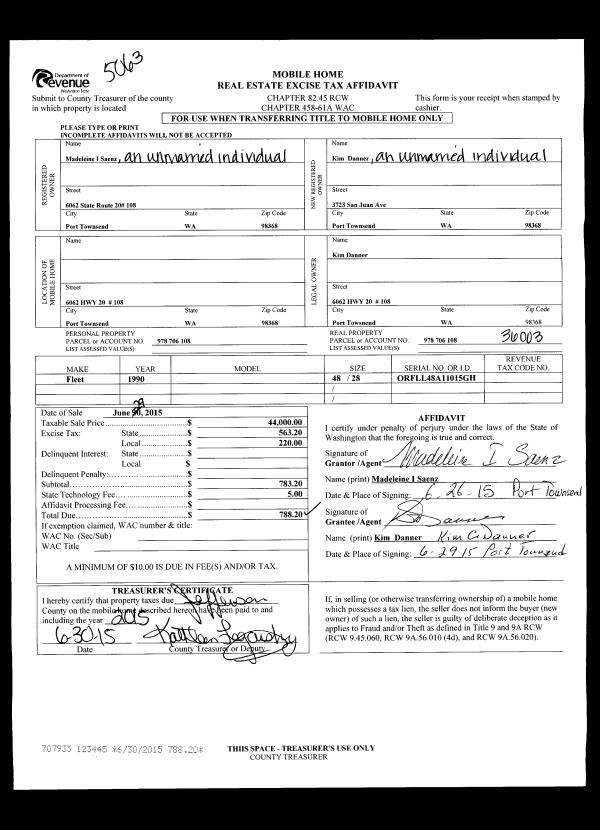 5063
Department of
Revenue
Washington State
MOBILE HOME
REAL ESTATE EXCISE TAX AFFIDAVIT
Submit to County Treasurer of the county
in which property is located
CHAPTER 82.45 RCW
CHAPTER 458-61A WAC
This form is your receipt when stamped by
cashier.
FOR USE WHEN TRANSFERRING TITLE TO MOBILE HOME ONLY
PLEASE TYPE OR PRINT
INCOMPLETE AFFIDAVITS WILL NOT BE ACCEPTED
REGISTERED OWNER
Name
Madeleine I Saenz, an unmarried individual
Street
6062 State Route 20# 108
City State Zip Code
Port Townsend WA 98368
NEW REGISTERED OWNER
Name
Kim Danner, an unmarried individual
Street
3723 San Juan Ave
City State Zip Code
Port Townsend WA 98368
LOCATION OF MOBILE HOME
Name
Street
6062 HWY 20 # 108
City State Zip Code
Port Townsend WA 98368
LEGAL OWNER
Name
Kim Danner
Street
6062 HWY 20 # 108
City State Zip Code
Port Townsend WA 98368
PERSONAL PROPERTY
PARCEL or ACCOUNT NO. 978 706 108
LIST ASSESSED VALUE(S):
REAL PROPERTY
PARCEL or ACCOUNT NO. 978 706 108
LIST ASSESSED VALUE(S):
36003
MAKE YEAR MODEL SIZE SERIAL NO. OR I.D. REVENUE TAX CODE NO.
Fleet 1990 48 / 28 ORFLL48A11015GH
/
/
29
Date of Sale June 30, 2015
Taxable Sale Price $ 44,000.00
Excise Tax: State $ 563.20
Local $ 220.00
Delinquent Interest: State $
Local $
Delinquent Penalty: $
Subtotal $ 783.20
State Technology Fee $ 5.00
Affidavit Processing Fee $
Total Due $ 788.20
If exemption claimed, WAC number & title:
WAC No. (Sec/Sub)
WAC Title
A MINIMUM OF $10.00 IS DUE IN FEE(S) AND/OR TAX.
AFFIDAVIT
I certify under penalty of perjury under the laws of the State of
Washington that the foregoing is true and correct.
Signature of
Grantor /Agent Madeleine I Saenz
Name (print) Madeleine I Saenz
Date & Place of Signing: 6-26-15 Port Townsend
Signature of
Grantee /Agent
Name (print) Kim Danner Kim C Danner
Date & Place of Signing: 6-29-15 Port Townsend
TREASURER'S CERTIFICATE
I hereby certify that property taxes due Jefferson
County on the mobile home described hereon have been paid to and
including the year 2015
6-30-15
Date County Treasurer or Deputy
If, in selling (or otherwise transferring ownership of) a mobile home
which possesses a tax lien, the seller does not inform the buyer (new
owner) of such a lien, the seller is guilty of deliberate deception as it
applies to Fraud and/or Theft as defined in Title 9 and 9A RCW
(RCW 9.45.060, RCW 9A.56.010 (4d), and RCW 9A.56.020).
707933 123445 *6/30/2015 788.20*
THIS SPACE - TREASURER'S USE ONLY
COUNTY TREASURER